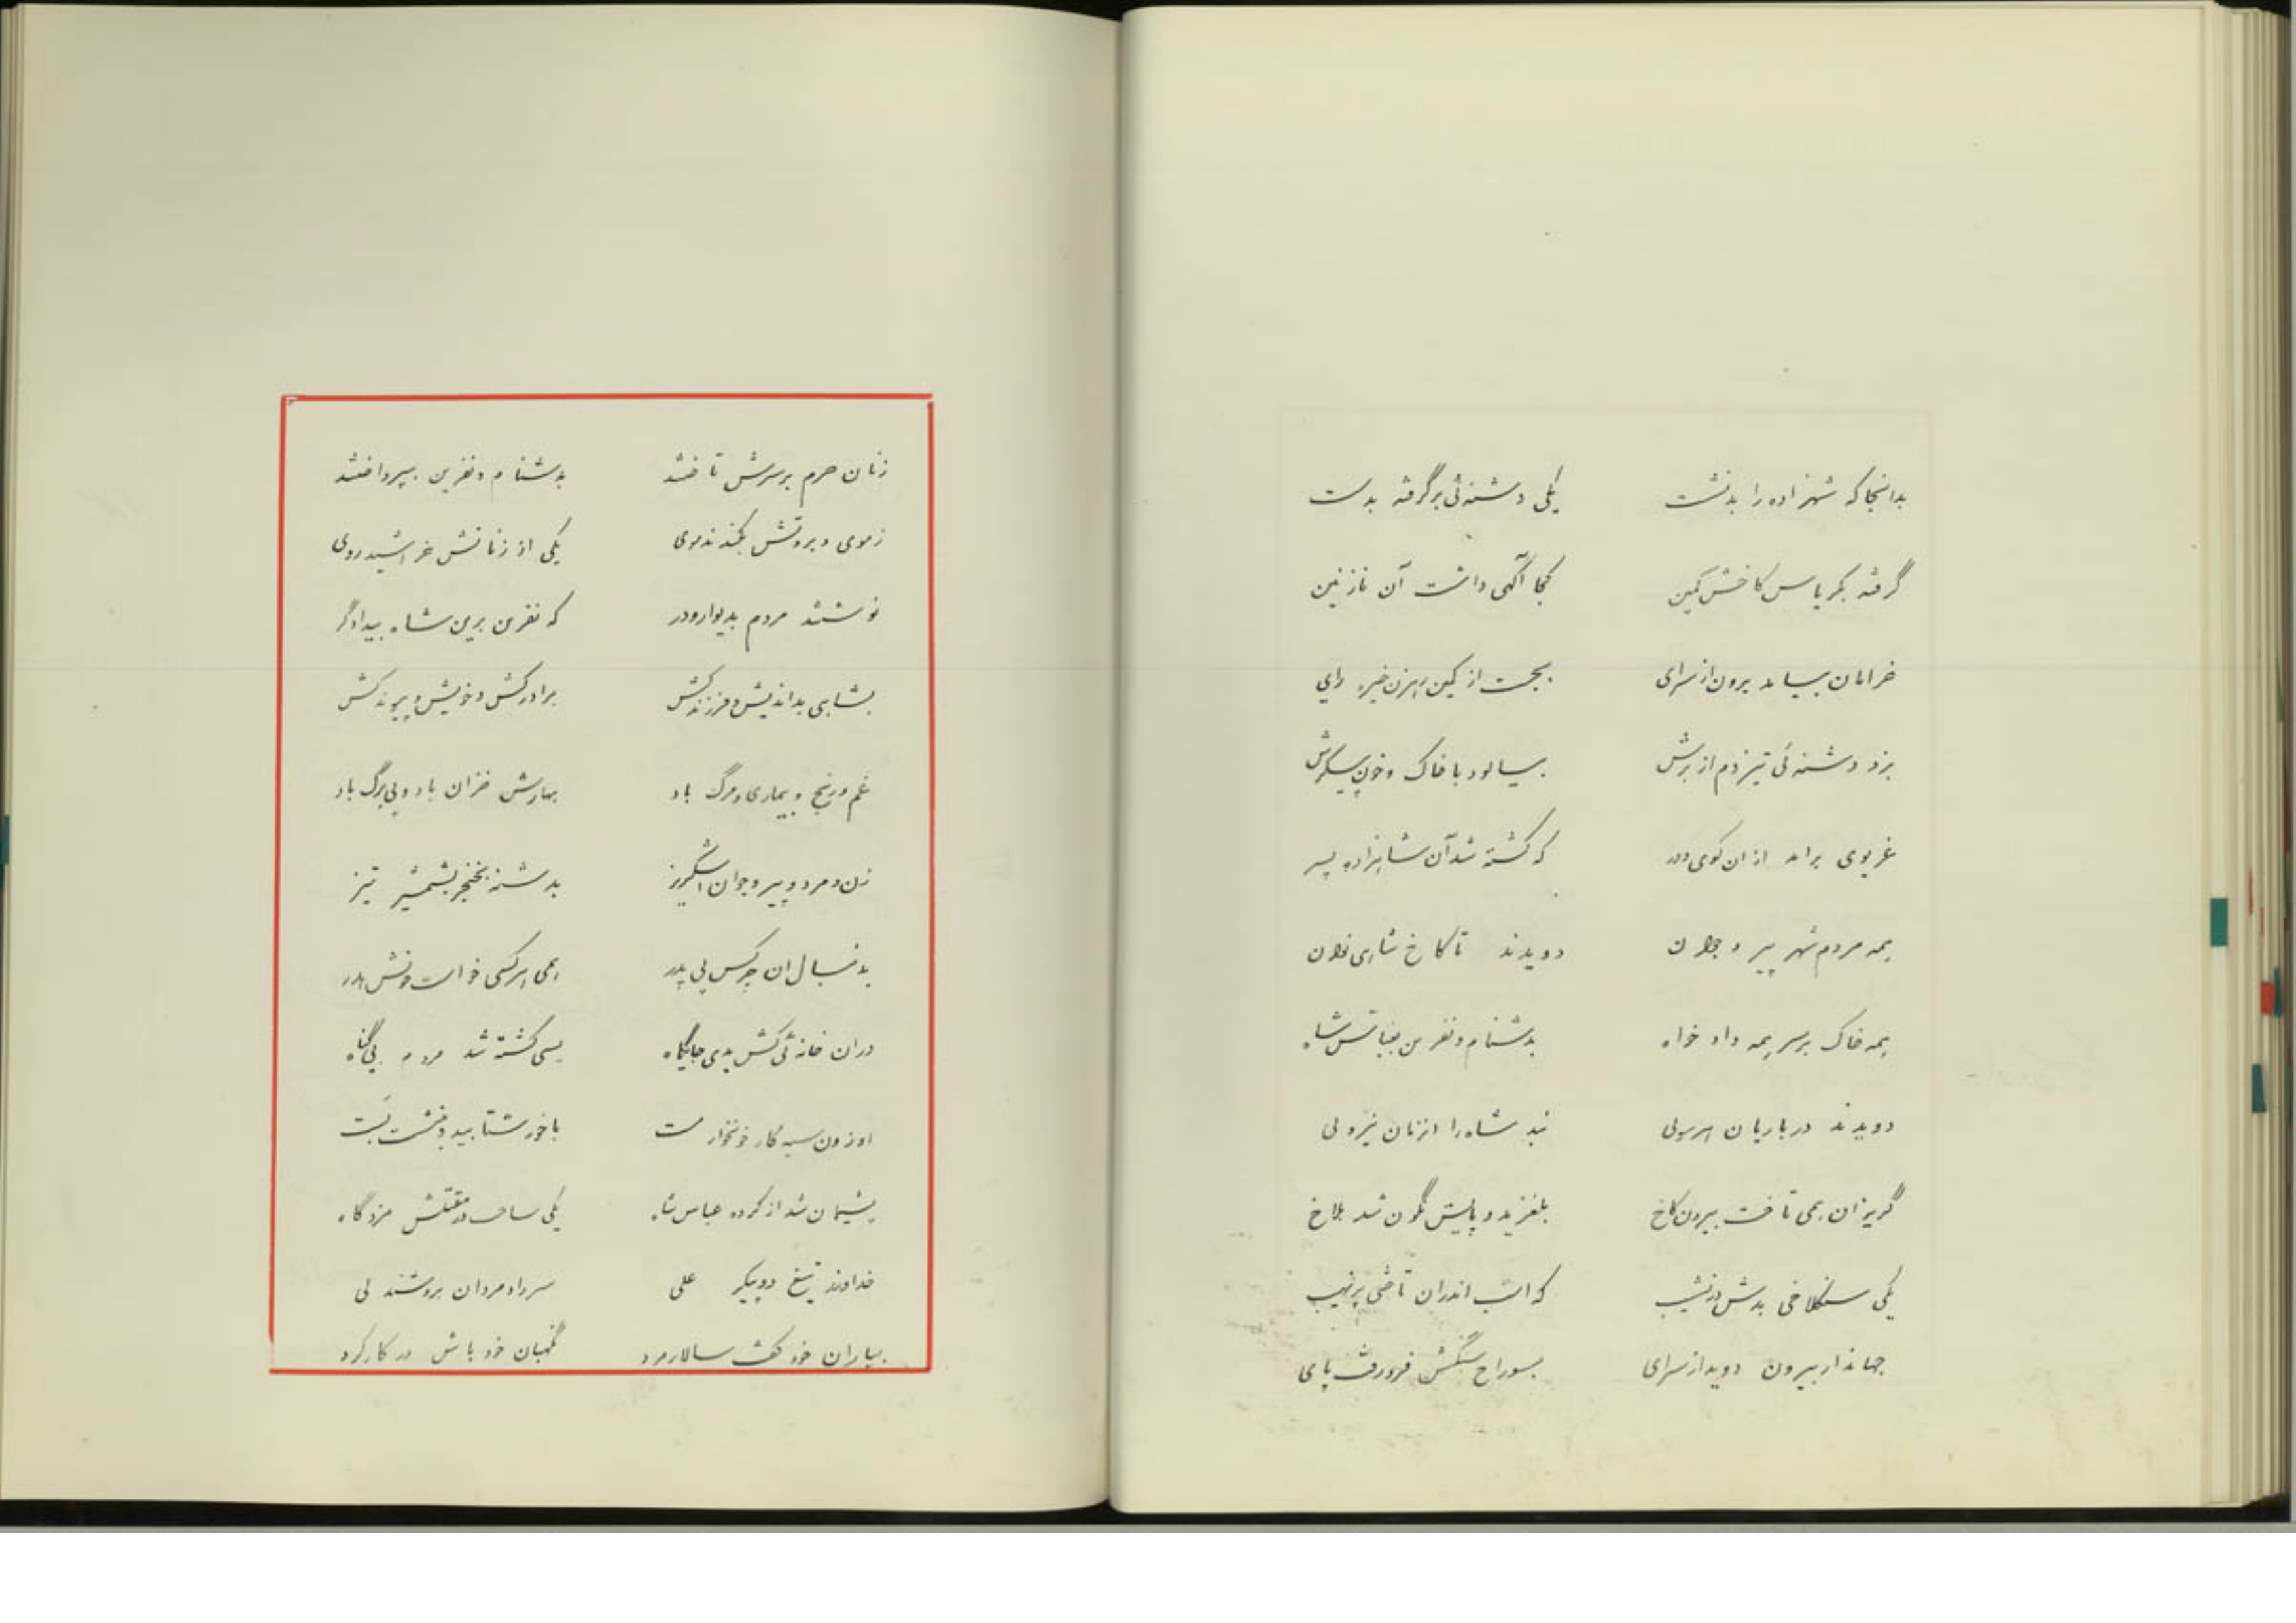 بدانجا که شهزاده را بد نشست یکی دشنه‌ئی برگرفته بدست
گرفته بکریاس کاخش کمین کجا آگهی داشت آن نازنین
خرامان بیامد برون از سرای بجست از کمین رهزن خیره رای
بزد دشنه‌ئی تیز دم از برش بیالود با خاک و خون پیکرش
غریوی برآمد از ان کوی ودر که کشته شد آن شاهزاده پسر
همه مردم شهر پیر و جوان دویدند تا کاخ شاهی نوان
همه خاک بر سر همه داد خواه بدشنام و نفرین بعباس شاه
دویدند درباریان هر سوئی نبد شاه را از زنان نیروئی
گریزان همی تاخت بیرون کاخ بلغزید و پایش نگون شد بلاخ
یکی سنگلاخی بدش در نشیب که اسب اندران تاختی پر نهیب
جهاندار بیرون دوید از سرای بسوراخ سنگش فرو رفت پای
زنان حرم بر سرش تاختند بدشنام و نفرین بپرداختند
زموی و بروتش بکندند موی یکی از زنانش خراشید روی
نوشتند مردم بدیوار ودر که نفرین برین شاه بیدادگر
بشاهی بداندیش و فرزندکش برادرکش و خویش و پیوندکش
غم و رنج و بیماری و مرگ باد بهارش خزان باد و بی برگ باد
زن و مرد و پیر و جوان اشکریز بدشنه بخنجر بشمشیر تیز
بدنبال ان چرکس بی پدر همی هر کسی خواست خونش هدر
دران خانه‌ئی کش بدی جایگاه بسی کشته شد مردم بی گناه
سیه کار خونخوار
پشیمان شد از کرده عباس شاه یکی ساخت در مقتلش مزدگاه
خداوند تیغ دو پیکر علی سر رادمردان بروشندلی
بیاران خود گفت سالار مرد نگهبان خود باش در کارکرد